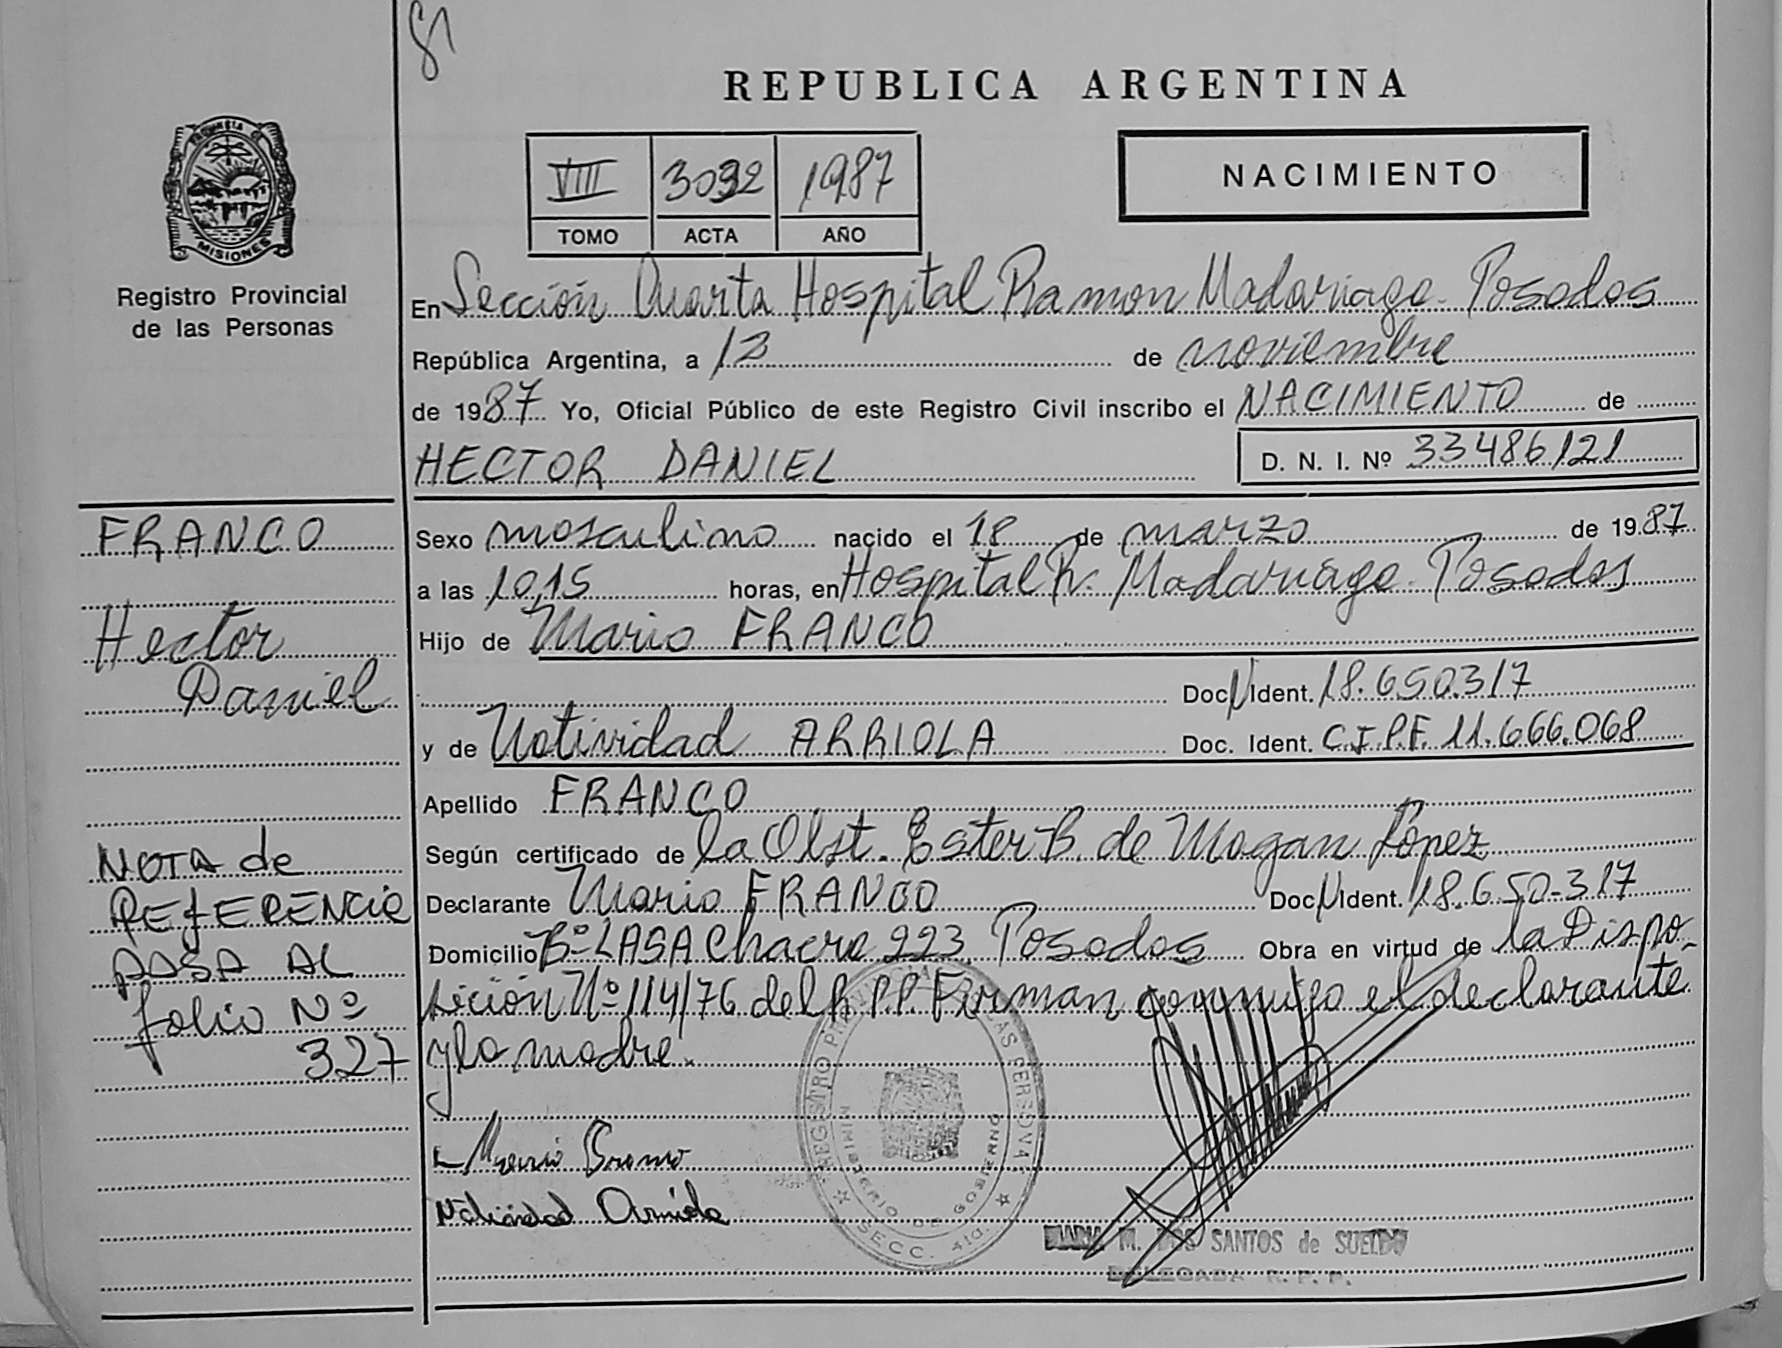 81
REPUBLICA ARGENTINA
VIII 3032 1987
TOMO ACTA AÑO
NACIMIENTO
PROVINCIA D MISIONES
Registro Provincial
de las Personas
En Sección Cuarta Hospital Ramon Madariaga. Posadas
República Argentina, a 12 de noviembre
de 1987 Yo, Oficial Público de este Registro Civil inscribo el NACIMIENTO de
HECTOR DANIEL D. N. I. Nº 33486121
FRANCO
Hector
Daniel
NOTA de
REFERENCIA
PASA AL
folio Nº
327
Sexo masculino nacido el 18 de marzo de 1987
a las 10,15 horas, en Hospital R. Madariaga. Posadas
Hijo de Mario FRANCO
Doc N Ident. 18.650.317
y de Natividad ARRIOLA Doc. Ident. C.I.P.F. 11.666.068
Apellido FRANCO
Según certificado de la Obst. Ester B. de Mogan Lopez
Declarante Mario FRANCO Doc N Ident. 18.650.317
Domicilio Bº LASA Chacra 223. Posadas Obra en virtud de la Dispo-
sición Nº 114/76 del R.P.P. Firman conmigo el declarante
y la madre.
REGISTRO PROVINCIAL DE LAS PERSONAS
MINISTERIO DE GOBIERNO
SECC. 4ta.
Natividad Arriola
M. DOS SANTOS de SUELDO
DELEGADA R. P. P.